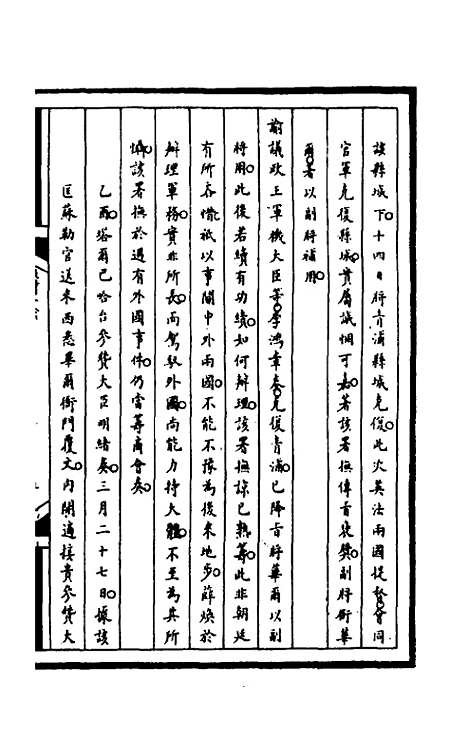 該縣城下。十四日將青浦縣城克復。此次英法兩國提督會同
官軍克復縣城。實屬誠悃可嘉。著該署撫傳旨獎。副將銜華
爾著以副將補用。
諭議政王軍機大臣等。李鴻章奏。克復青浦。已降旨將華爾以副
將用。此後若續有功績。如何辦理。該署撫諒已熟籌。此非朝廷
有所吝惜。祇以事關中外兩國。不能不豫為後來地步。薛煥於
辦理軍務。實非所長。而駕馭外國。尚能力持大體。不至為其所
惱。該署撫於遇有外國事件。仍當籌商會奏。
乙酉。塔爾巴哈台參贊大臣明緒奏。三月二十七日。據該
匡蘇勒官送來西悉畢爾衙門覆文。內開適接貴參贊大